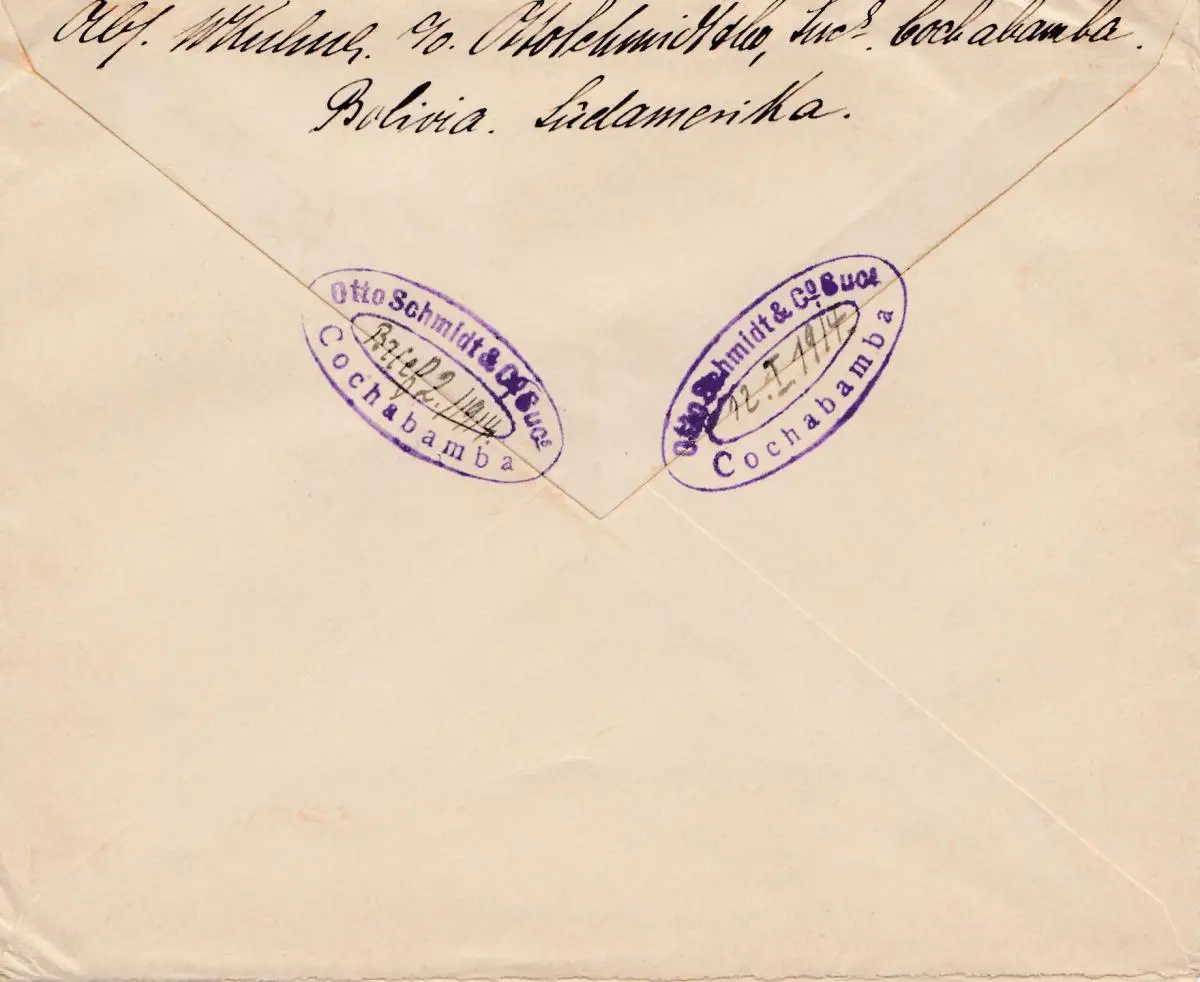 Abs. WKuhne. c/o. Otto Schmidt & Co, Sucs. Cochabamba.
Bolivia. Südamerika.
Otto Schmidt & Co. Sucs
Brief 2./1914.
Cochabamba
Otto Schmidt & Co. Sucs
12. I 1914.
Cochabamba